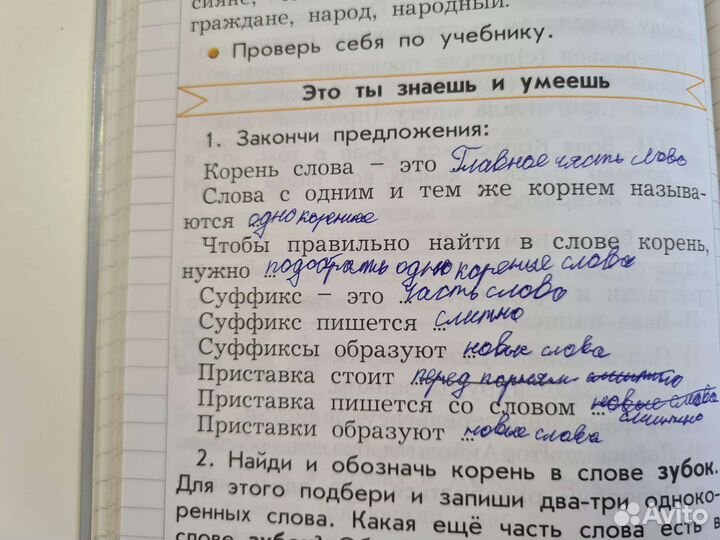 сияне,
граждане, народ, народный.
• Проверь себя по учебнику.
Это ты знаешь и умеешь
1. Закончи предложения:
Корень слова – это Главное часть слова
Слова с одним и тем же корнем называ-
ются ...однокорение
Чтобы правильно найти в слове корень,
нужно ...подобрать однокореные слова
Суффикс – это ...часть слова
Суффикс пишется ...слитно
Суффиксы образуют ...новые слова
Приставка стоит ...перед корнем слитно
Приставка пишется со словом ...новые слова
слитно
Приставки образуют ...новые слова
2. Найди и обозначь корень в слове зубок.
Для этого подбери и запиши два-три одноко-
ренных слова. Какая ещё часть слова есть в
слове зубок?
Avito